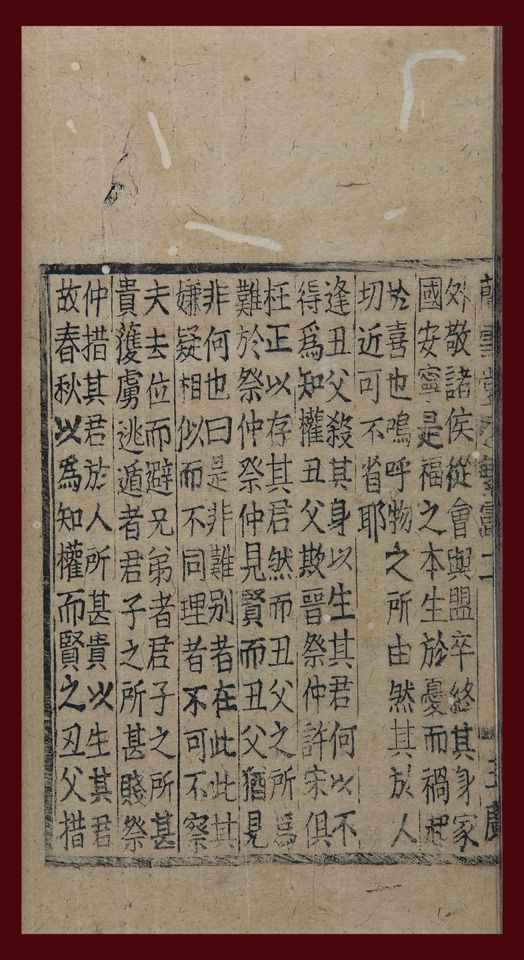 蘭雪堂
外敬諸侯從會與盟卒終其身家
國安寧是福之本生於憂而禍起
扵喜也鳴呼物之所由然其扵人
切近可不省耶
逢丑父殺其身以生其君何以不
得爲知權丑父欺晉祭仲許宋俱
枉正以存其君然而丑父之所爲
難於祭仲祭仲見賢而丑父猶見
非何也曰是非難别者在此此其
嫌疑相似而不同理者不可不察
夫去位而避兄弟者君子之所甚
貴獲虜逃遁者君子之所甚賤祭
仲措其君於人所甚貴以生其君
故春秋以爲知權而賢之丑父措